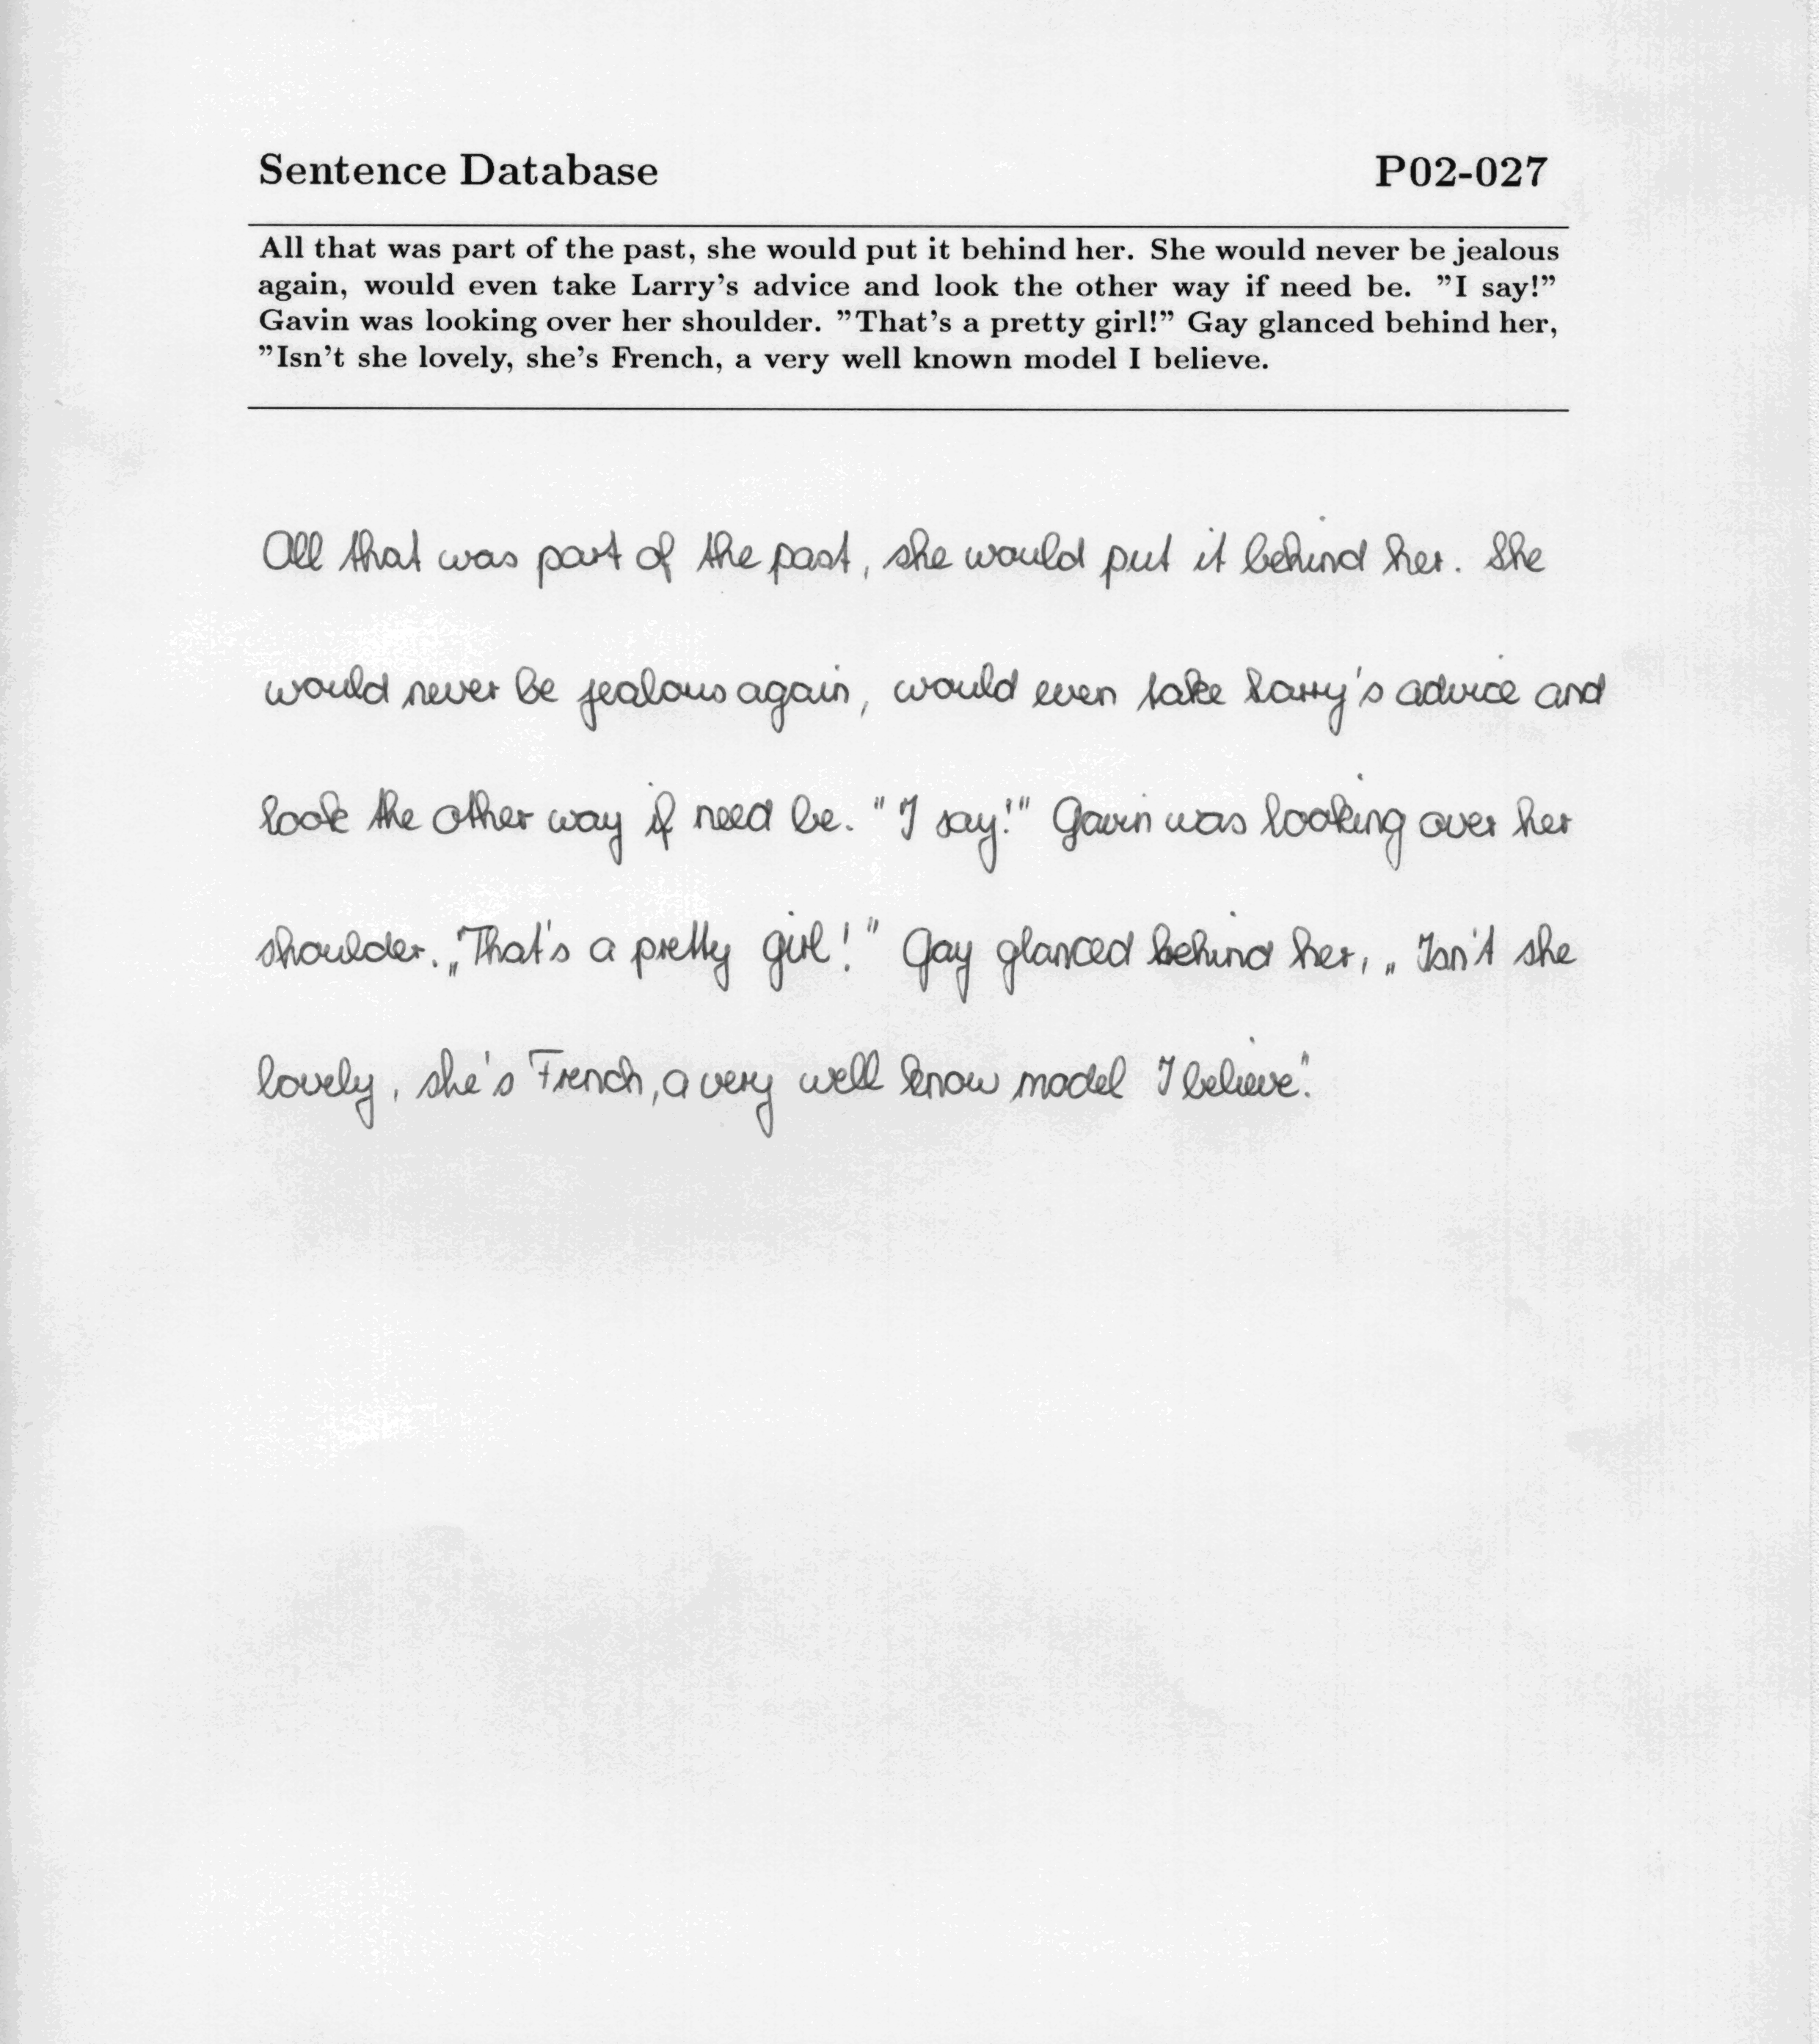 Sentence Database P02-027
All that was part of the past, she would put it behind her. She would never be jealous
again, would even take Larry's advice and look the other way if need be. "I say!"
Gavin was looking over her shoulder. "That's a pretty girl!" Gay glanced behind her,
"Isn't she lovely, she's French, a very well known model I believe.
All that was part of the past, she would put it behind her. She
would never be jealous again, would even take Larry's advice and
look the other way if need be. "I say!" Gavin was looking over her
shoulder. „That's a pretty girl!" Gay glanced behind her, „Isn't she
lovely, she's French, a very well know model I believe."